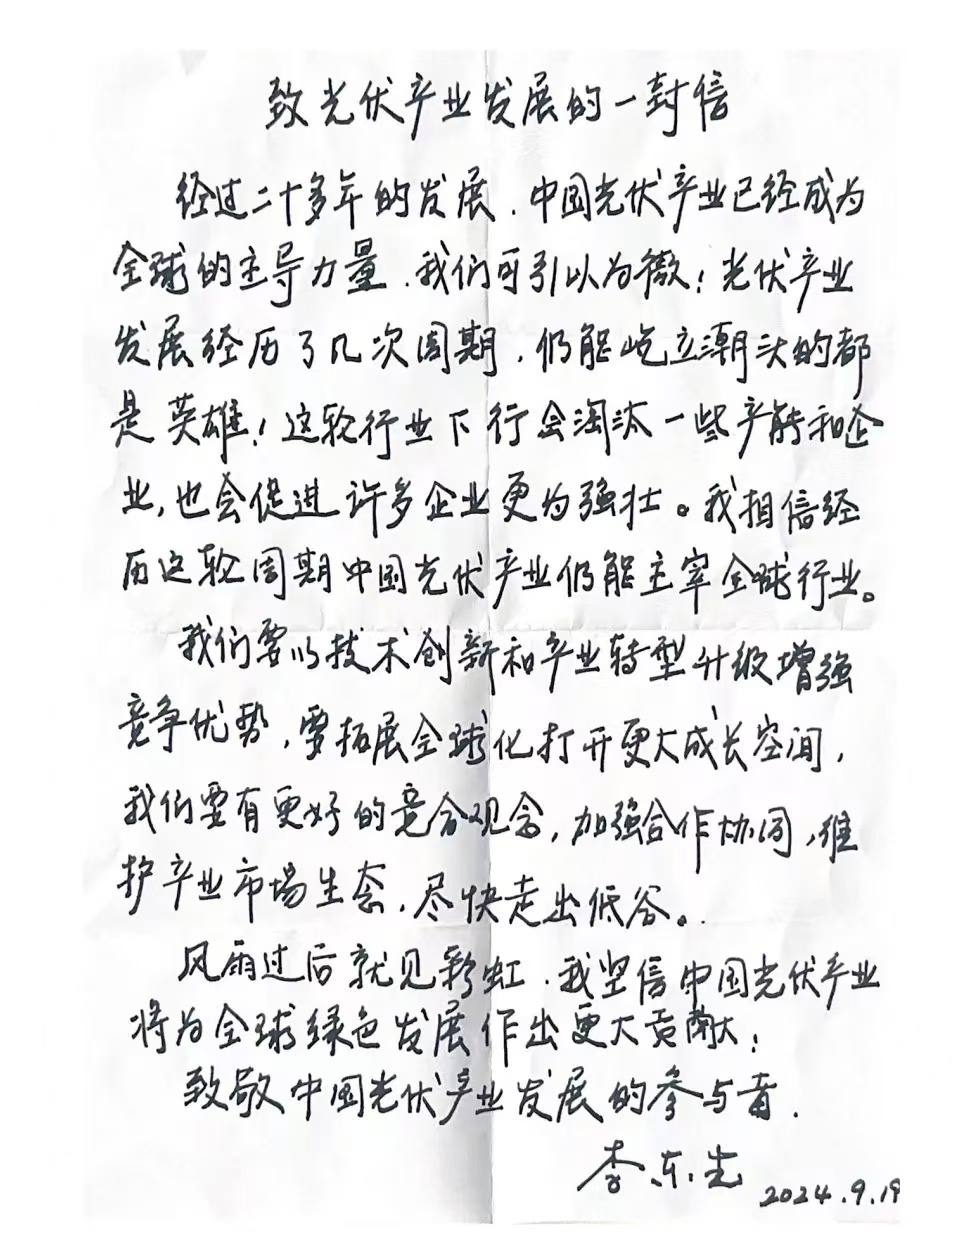 致光伏产业发展的一封信
经过二十多年的发展，中国光伏产业已经成为
全球的主导力量，我们可引以为傲！光伏产业
发展经历了几次周期，仍能屹立潮头的都
是英雄！这轮行业下行会淘汰一些产能和企
业，也会促进许多企业更为强壮。我相信经
历这轮周期中国光伏产业仍能主宰全球行业。
我们要以技术创新和产业转型升级增强
竞争优势，要拓展全球化打开更大成长空间，
我们要有更好的竞合观念，加强合作协同，维
护产业市场生态，尽快走出低谷。
风雨过后就见彩虹，我坚信中国光伏产业
将为全球绿色发展作出更大贡献！
致敬中国光伏产业发展的参与者．
李东生
2024.9.19